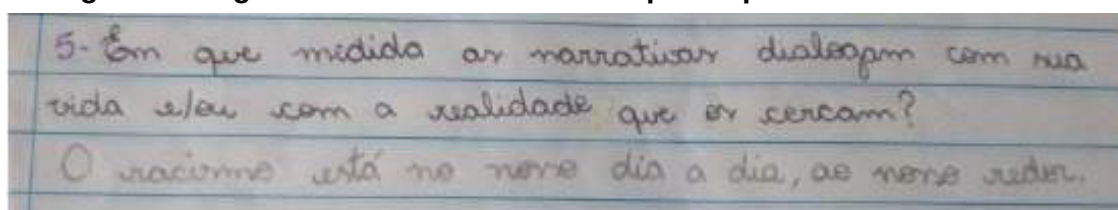 5- Em que medida as narrativas dialogam com sua
vida e/ou com a realidade que os cercam?
O racismo está no nosso dia a dia, ao nosso redor.